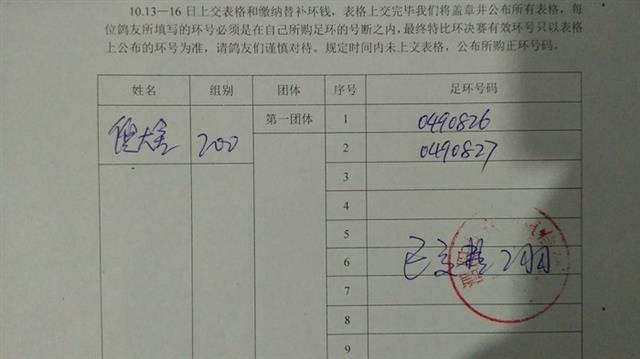 10.13—16日上交表格和缴纳替补环钱，表格上交完毕我们将盖章并公布所有表格，每
位鸽友所填写的环号必须是在自己所购足环的号断之内，最终特比环决赛有效环号只以表格
上公布的环号为准，请鸽友们谨慎对待。规定时间内未上交表格，公布所购正环号码。
姓名 组别 团体 序号 足环号码
倪大 200 第一团体 1 0490826
2 0490827
3
4
5
6
7
8
9